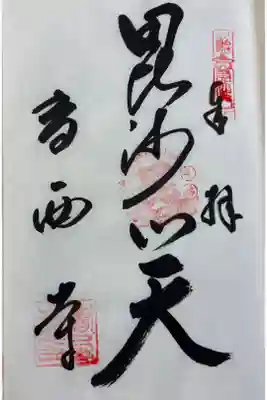 奉拝
毘沙門天
香西寺